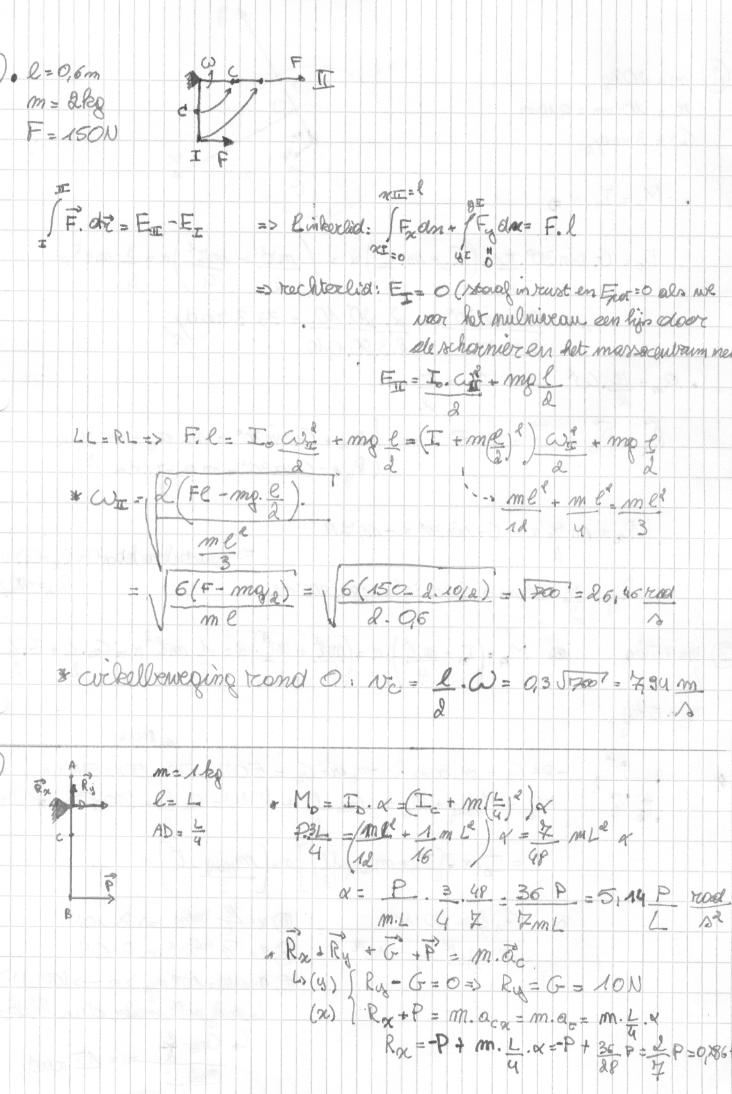 ). • l = 0,6m
m = 2kg
F = 150N
ω C F II
C
I F
∫_I^II F⃗. dr⃗ = E_II - E_I => linkerlid: ∫_{xI=0}^{xII=l} F_x dx + ∫_{yI}^{yII} F_y dx = F. l
0
=> rechterlid: E_I = 0 (staaf in rust en E_pot = 0 als we
voor het nulniveau een lijn door
de scharnier en het massacentrum ne
E_II = I_0. ω_II²/2 + mg l/2
LL = RL => F. l = I_0 ω_II²/2 + mg l/2 = (I + m(l/2)²) ω_II²/2 + mg l/2
ml²/12 + m l²/4 = ml²/3
* ω_II = √(2(Fl - mg. l/2). / (ml²/3))
= √(6(F - mg/2) / ml) = √(6(150 - 2.10/2) / 2. 0,6) = √700 = 26,46 rad/s
* cirkelbeweging rond O: v_c = l/2 . ω = 0,3 √700 = 7,94 m/s
)
A
R⃗_x R⃗_y
D
C
P⃗
B
m = 1kg
l = L
AD = L/4
• M_D = I_D. α = (I_C + m(L/4)²) α
P.3L/4 = (ml²/12 + 1/16 mL²) α = 7/48 mL² α
α = P/m.L . 3/4 . 48/7 = 36 P/7mL = 5,14 P/L rad/s²
• R⃗_x + R⃗_y + G⃗ + P⃗ = m. a⃗_c
↳ (y) { R_y - G = 0 => R_y = G = 10N
(x) { R_x + P = m. a_cx = m. a_c = m. L/4 . α
R_x = -P + m. L/4 . α = -P + 36/28 P = 2/7 P = 0,286